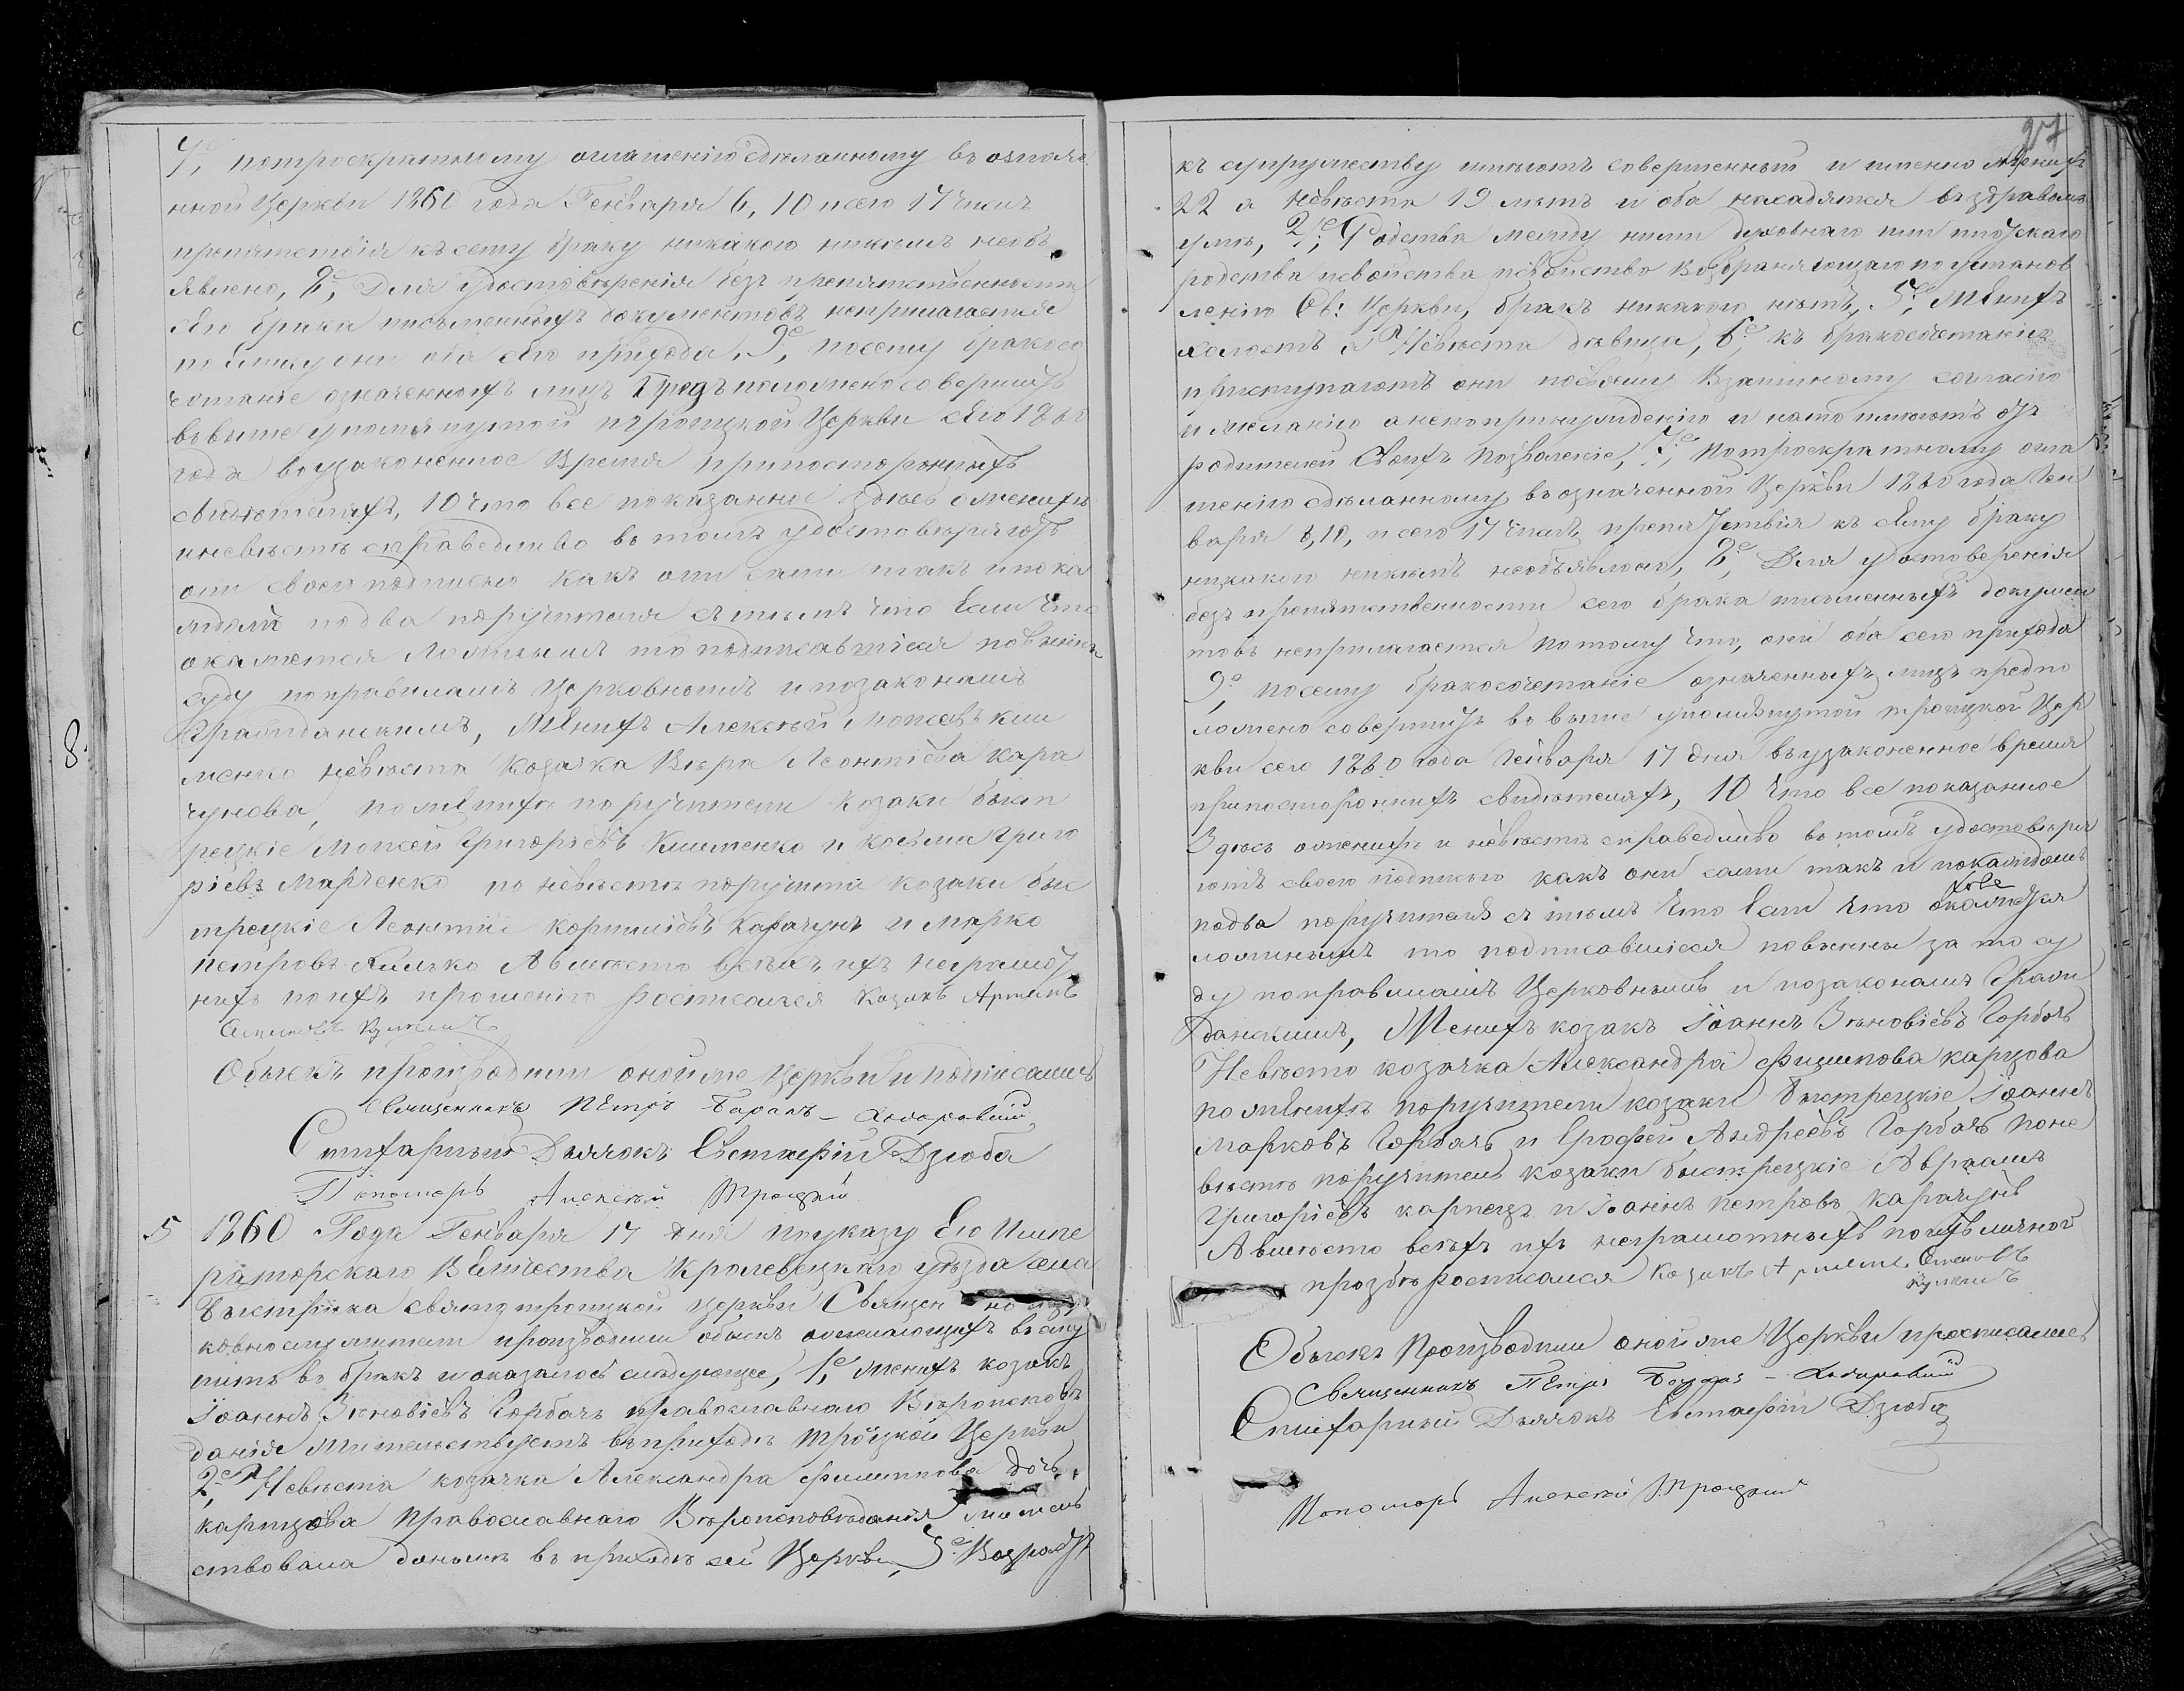 7е, потроекратному оглашенію сдѣланному во означе
нной Церкви 1860 года Генваря 6, 10 и сего 17 числ
препятствія къ сему браку никакого никемъ необъ
явлено, 8е, Для удостовѣренія безъ препятственности
сего брака письменныхъ документовъ неприлагается
поелику они оба сего прихода, 9е, посему бракосо
четаніе означенныхъ лицъ Предъположено совершить
въ вышеупомянутой троицкой Церкви сего 1860
года въ узаконенное время припостороннихъ
свидѣтеляхъ, 10 что все показанное здѣсь оженихѣ
иневѣстѣ справедливо въ томъ удостовѣряютъ
они своею подписью какъ они сами такъ и пока
ждомъ подва поручителя съ тѣмъ что если что
окажется ложнымъ то подписавшіися повинны
суду поправиламъ Церковнымъ и позаконамъ
Гражданскимъ, Женихъ Алексѣй Мокеевъ Кли
менко невѣста Козачка Вѣра Леонтіева Кара
чунова, поженихѣ поручители Козаки быст
рецкіе Мокей Григорьевъ Клименко и Козьма Григо
ріевъ Марченко по невѣстѣ поручители козаки быс
трецкіе Леонтій Корниліевъ Карачунъ и Марко
Петровъ Авмѣсто всѣхъ ихъ неграмот
ныхъ по ихъ прошенію росписался Козакъ Артемъ
Семеновъ
Обыскъ производили оной же Церкви и подписались
Священникъ Петръ
Стихарный Дьячокъ Евстафій Дзюба
Пономарь Алексѣй Троцкій
5 1860 Года Генваря 17 дня по указу Его Импе
раторскаго Величества Кролевецкаго уѣзда села
Быстрика святотроицкой церкви Священно и цер
ковнослужители производили обыскъ ожелающихъ всту
пить въ бракъ и оказалось слѣдующее, 1е, женихъ козакъ
Іоаннъ Зѣновіевъ Горбачъ православнаго Вѣроисповѣ
данія Жительствуетъ въ приходѣ троицкой Церкви
2е, Невѣста козачка Александра Филиппова дочь
карпцова Православнаго Вѣроисповѣданія житель
ствовала донынѣ въ приходѣ сей Церкви, 3е Возрастъ
27
къ супружеству имѣютъ совершенный и именно женихъ
22 а невѣста 19 лѣтъ и оба находятся въ здравомъ
умѣ, 4е; Родства между ними духовнаго или плотскаго
родства исвойства исвойство возбраняющаго по установ
ленію Св: Церкви, бракъ никакого нѣтъ, 5е, Женихъ
холостъ а Невѣста дѣвица, 6е, къ бракосочетанію
приступаютъ они посвоему Взаимному согласію
и желанію анепопринужденію и нато имѣютъ отъ
родителей Своихъ позволеніе, 7е, Потроекратному огла
шенію сдѣланному въ означенной Церкви 1860 года Ген
варя 6, 10, и сего 17 чисел, препятствія къ сему браку
никакого никѣмъ необъявлено, 8е, Для удостоверенія
безъ препятственности сего брака письменныхъ докумен
товъ неприлагается потому что, они оба сего прихода
9е, посему бракосочетаніе означенныхъ лицъ предпо
ложено совершить въ выше упомянутой троицкой Цер
кви сего 1860 года Генваря 17 дня въ узаконенное время
припостороннихъ свидѣтеляхъ, 10 Что все показанное
Здѣсь оженихѣ и невѣстѣ справедливо въ томъ удостовѣря
ютъ своею подписью какъ они сами такъ и покаждомъ
подва поручителя съ тѣмъ что если что окажется
ложнымъ то подписавшіися повинны за то су
ду поправиламъ Церковнымъ и позаконамъ Граж
данскимъ, Женихъ козакъ Іоаннъ Зѣновіевъ Горбачъ
Невѣсто козачка Александра Филипова карпцова
поженихѣ поручители козаки быстрецкіе Іоаннъ
Марковъ Горбачъ и Ерофей Андреевъ Горбачъ поне
вѣстѣ поручители козаки быстрецкіе Авраамъ
Григоріевъ карпецъ и Іоаннъ Петровъ карачунъ
Авмѣсто всѣхъ ихъ неграмотныхъ поихъ личной
прозбѣ росписался Козакъ Артемъ Семеновъ
Обыскъ Производили оной же Церкви и росписались
Священникъ Петръ
Стихарный Дьячокъ Евстафій Дзюба
Пономарь Алексѣй Троцкій
8